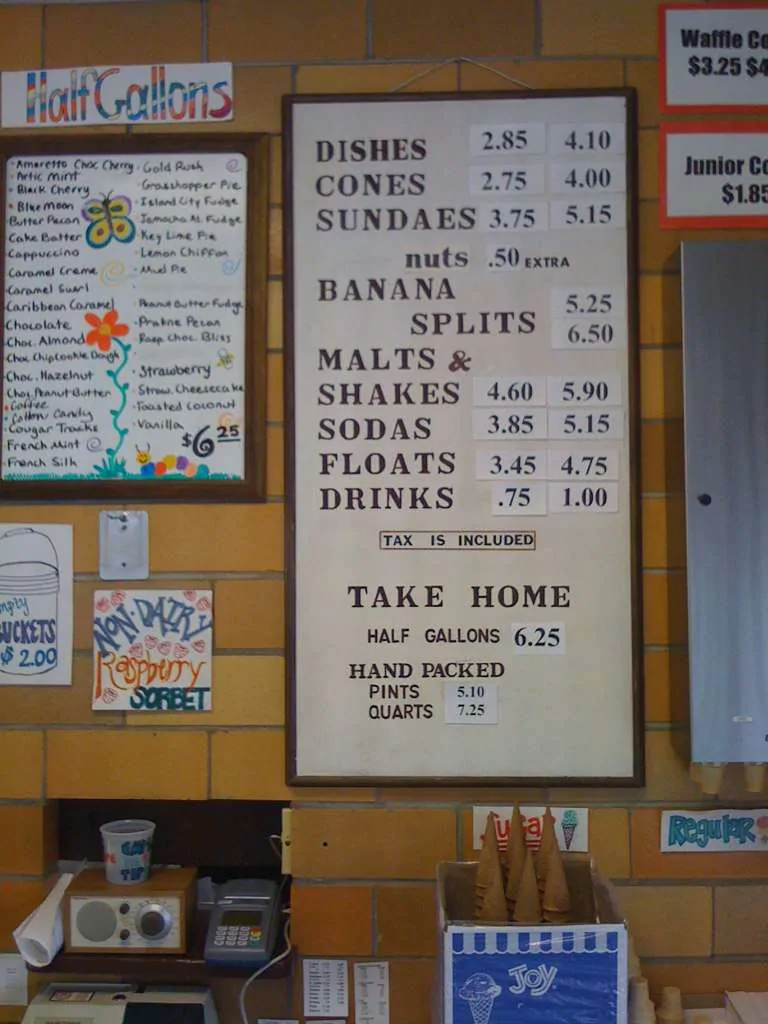 Half Gallons
Amaretto Choc Cherry
Artic Mint
Black Cherry
Blue Moon
Butter Pecan
Cake Batter
Cappuccino
Caramel Creme
Caramel Swirl
Caribbean Caramel
Chocolate
Choc. Almond
Choc Chip Cookie Dough
Choc. Hazelnut
Choc Peanut Butter
Coffee
Cotton Candy
Cougar Tracks
French Mint
French Silk
Gold Rush
Grasshopper Pie
Island City Fudge
Jamocha Al. Fudge
Key Lime Pie
Lemon Chiffon
Mud Pie
Peanut Butter Fudge
Praline Pecan
Rasp. Choc. Bliss
Strawberry
Straw. Cheesecake
Toasted Coconut
Vanilla
$6 25
DISHES 2.85 4.10
CONES 2.75 4.00
SUNDAES 3.75 5.15
nuts .50 EXTRA
BANANA 5.25
SPLITS 6.50
MALTS &
SHAKES 4.60 5.90
SODAS 3.85 5.15
FLOATS 3.45 4.75
DRINKS .75 1.00
TAX IS INCLUDED
TAKE HOME
HALF GALLONS 6.25
HAND PACKED
PINTS 5.10
QUARTS 7.25
Waffle Co
$3.25 $4
Junior Co
$1.85
mpty
UCKETS
$2.00
NON-DAIRY
Raspberry
SORBET
Sugar
Regular
TIP
JOY